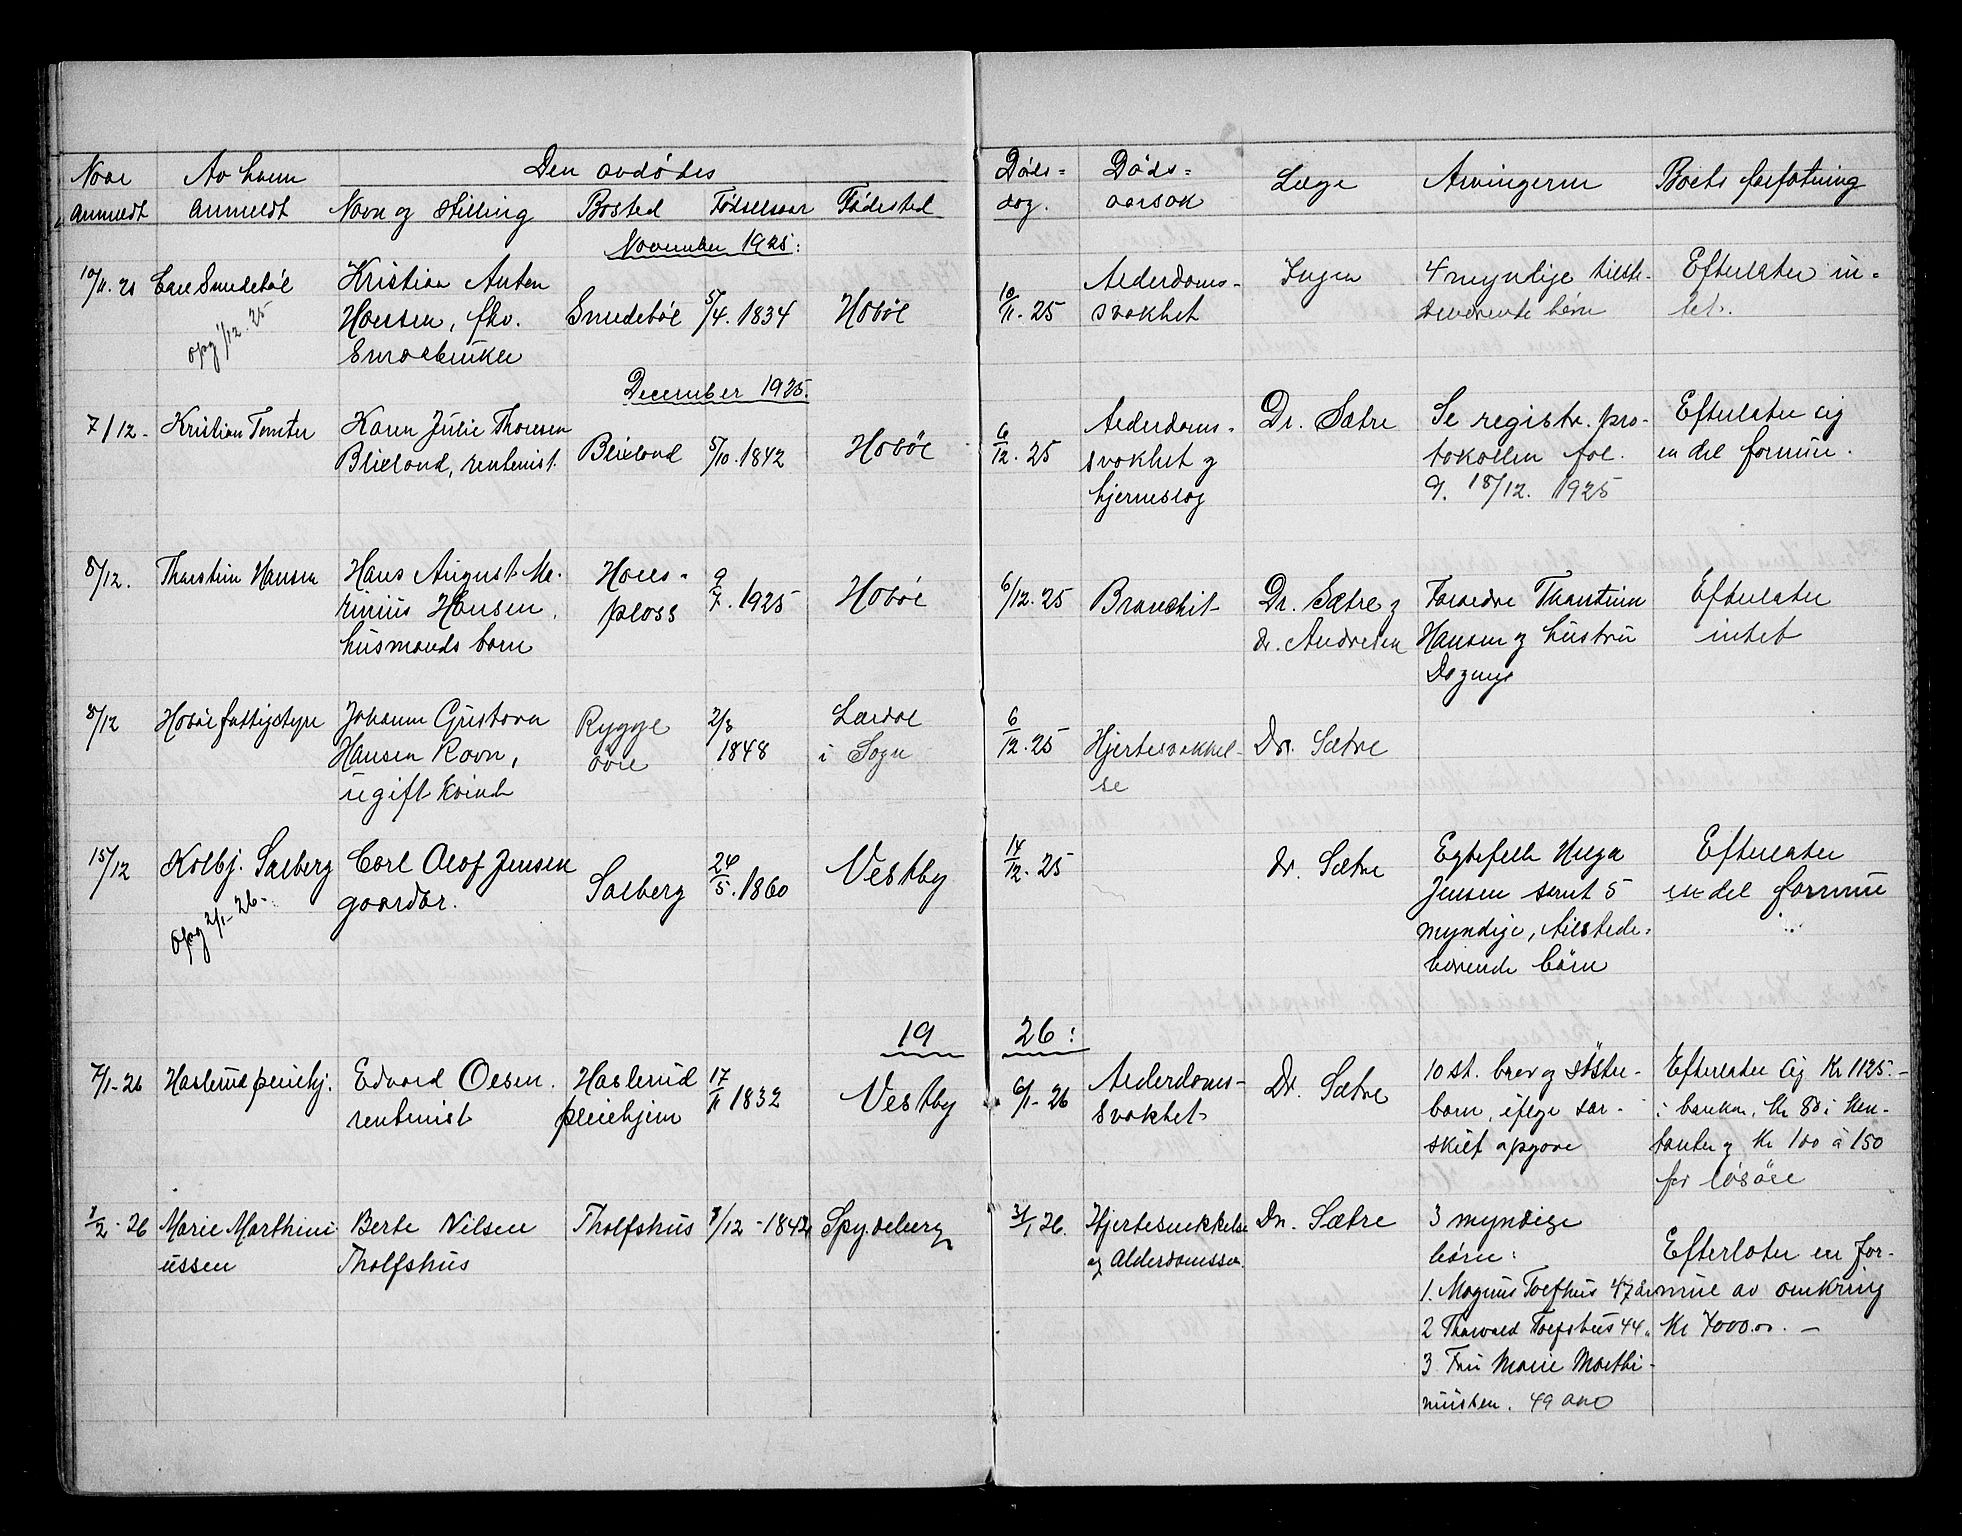 Naar Av hvem Den avdødes Døds- Døds- Læge Arvingerne Boets forfatning
anmeldt anmeldt Navn og stilling Bosted Fødselsaar Fødested dag. aarsak
November 1925:
10/11. 25 Carl Smedebøl Kristian Anton Smedebøl 5/4. 1834 Hobøl 10/11. 25 Alderdoms- Ingen 4 myndige tilste- Efterlater in-
opg 1/12. 25 Hansen, fhv. svakhet deværende børn tet.
Smaabruker
December 1925.
7/12- Kristian Tomter Karen Julie Thoresen Blixland 5/10. 1842 Hobøl 6/12. 25 Alderdoms- Dr. Sætre Se registr. pro- Efterlater sig
Blixland, rentenist. svakhet og tokollen fol. en del formue.
hjerneslag 9. 18/12. 1925
8/12. Thorstein Hansen Hans August Ma- 9/7. 1925 Hobøl 6/12. 25 Bronchit Dr. Sætre og Forældre Thorstein Efterlater
rinius Hansen, plass dr. Andresen Hansen og hustru intet
husmands barn Dagny
8/12 Hobøl fattigstyre Johanne Gustava Rygge 2/3 1848 Lærdal 6/12. 25 Hjertesvækkel- Dr. Sætre
Hansen Ravn, i Sogn se
ugift kvinde
15/12 Kolbj. Salberg Carl Olaf Jensen Salberg 24/5. 1860 Vestby 14/12. 25 dr. Sætre Egtefelle Helga Efterlater
opg 2/1-26. gaardbr. Jensen samt 5 en del formue
myndige, tilstede-
værende børn
1926:
7/1-26 Haslerud pleiehj. Edvard Olsen. Haslerud 17/11 1832 Vestby 6/1-26 Alderdoms- Dr. Sætre 10 st. bror og søster- Efterlater sig Kr 1125.-
rentenist pleiehjem svakhet barn, ifølge sær- i banken, Kr 80 i kon-
skilt opgave tanter og Kr 100 à 150
for løsøre
1/2-26 Marie Marthini- Berte Nilsen Tholfshus 8/12-1842 Spydeberg 31/1 26. Hjertesvekkelse Dr. Sætre 3 myndige
ussen Tholfshus og Alderdomssv. børn: Efterlater en for-
1. Magnus Tolfhus 47 år mue av omkring
2 Thorvald Tolfshus 44 " Kr 7000.00. -
3 Fru Marie Marthi-
niussen. 49 aar